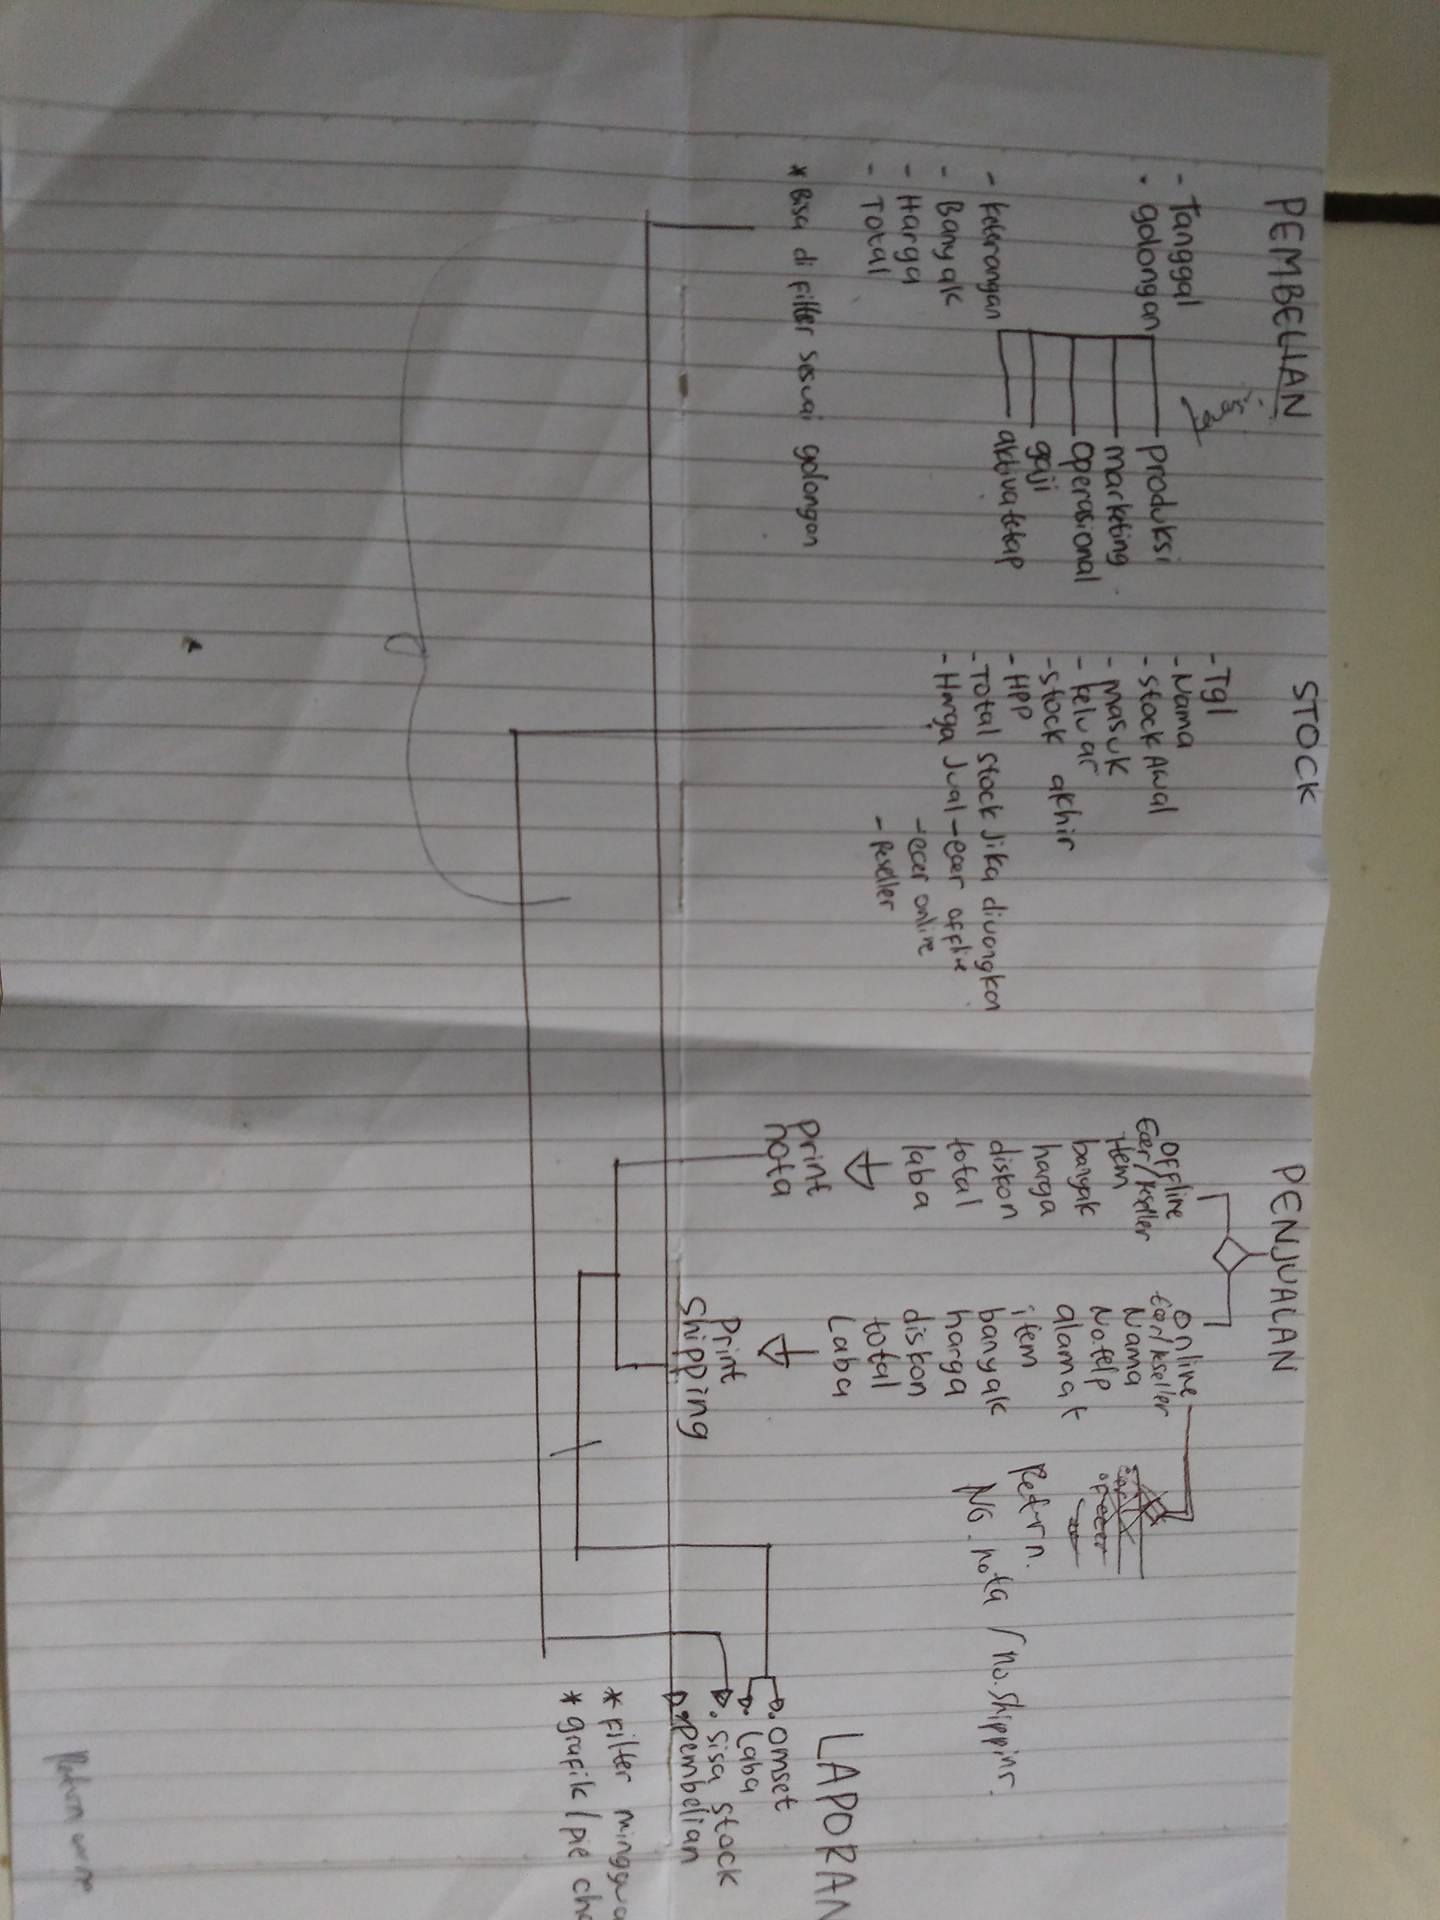 PEMBELIAN
- Tanggal
- golongan
produksi
marketing
operasional
gaji
aktiva tetap
- keterangan
- Banyak
- Harga
- Total
* Bisa di filter sesuai golongan
STOCK
- Tgl
- Nama
- Stock Awal
- Masuk
- keluar
- Stock akhir
- HPP
- Total Stock Jika diuangkan
- Harga Jual - ecer offline
- ecer online
- Reseller
PENJUALAN
offline
Ecer/Reseller
item
banyak
harga
diskon
total
laba
print
nota
online
Ecer/Reseller
Nama
No.telp
alamat
item
banyak
harga
diskon
total
Laba
Print
Shipping
Return.
No. nota / no. shipping.
LAPORAN
. omset
. Laba
. sisa stock
. pembelian
* Filter minggua
* grafik / pie cha
Return